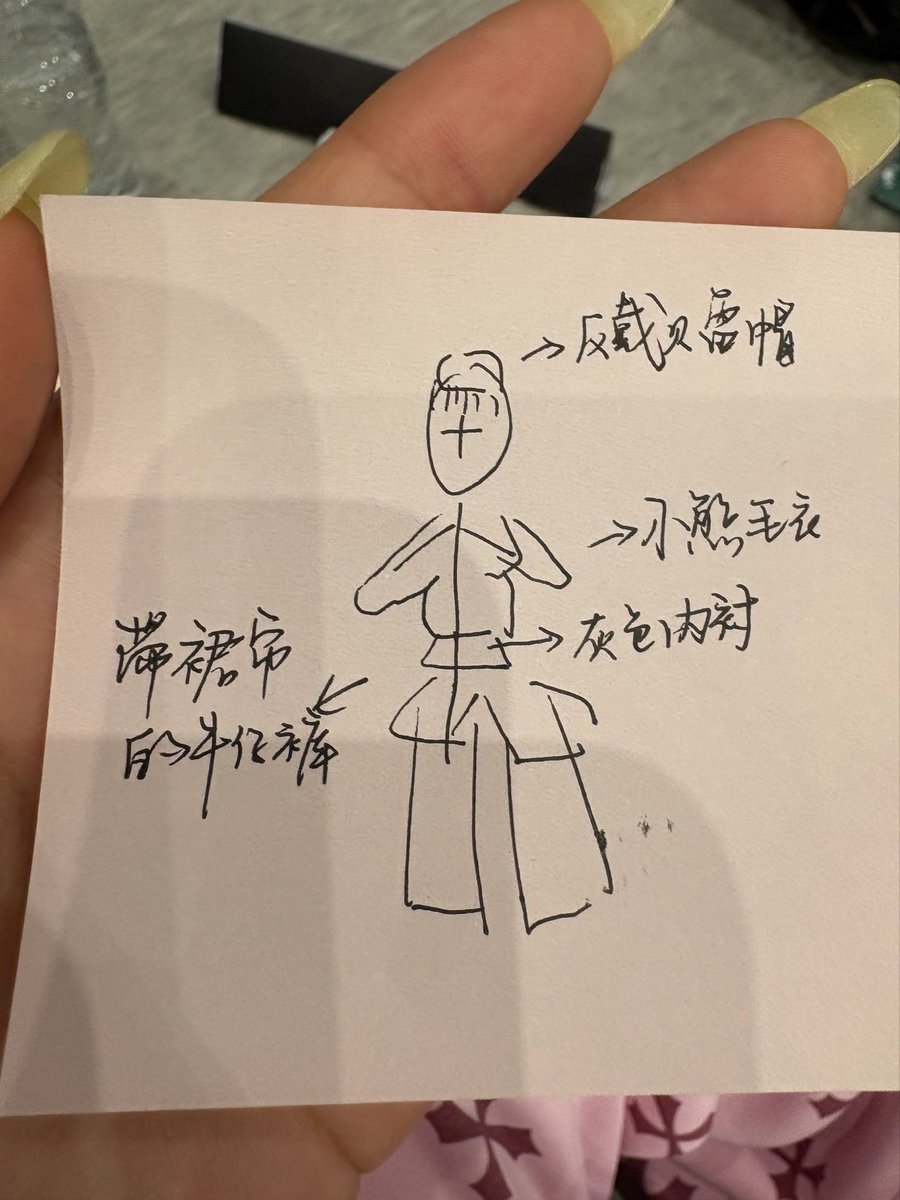 反戴贝雷帽
小熊毛衣
灰色内衬
带裙帘
的牛仔裤